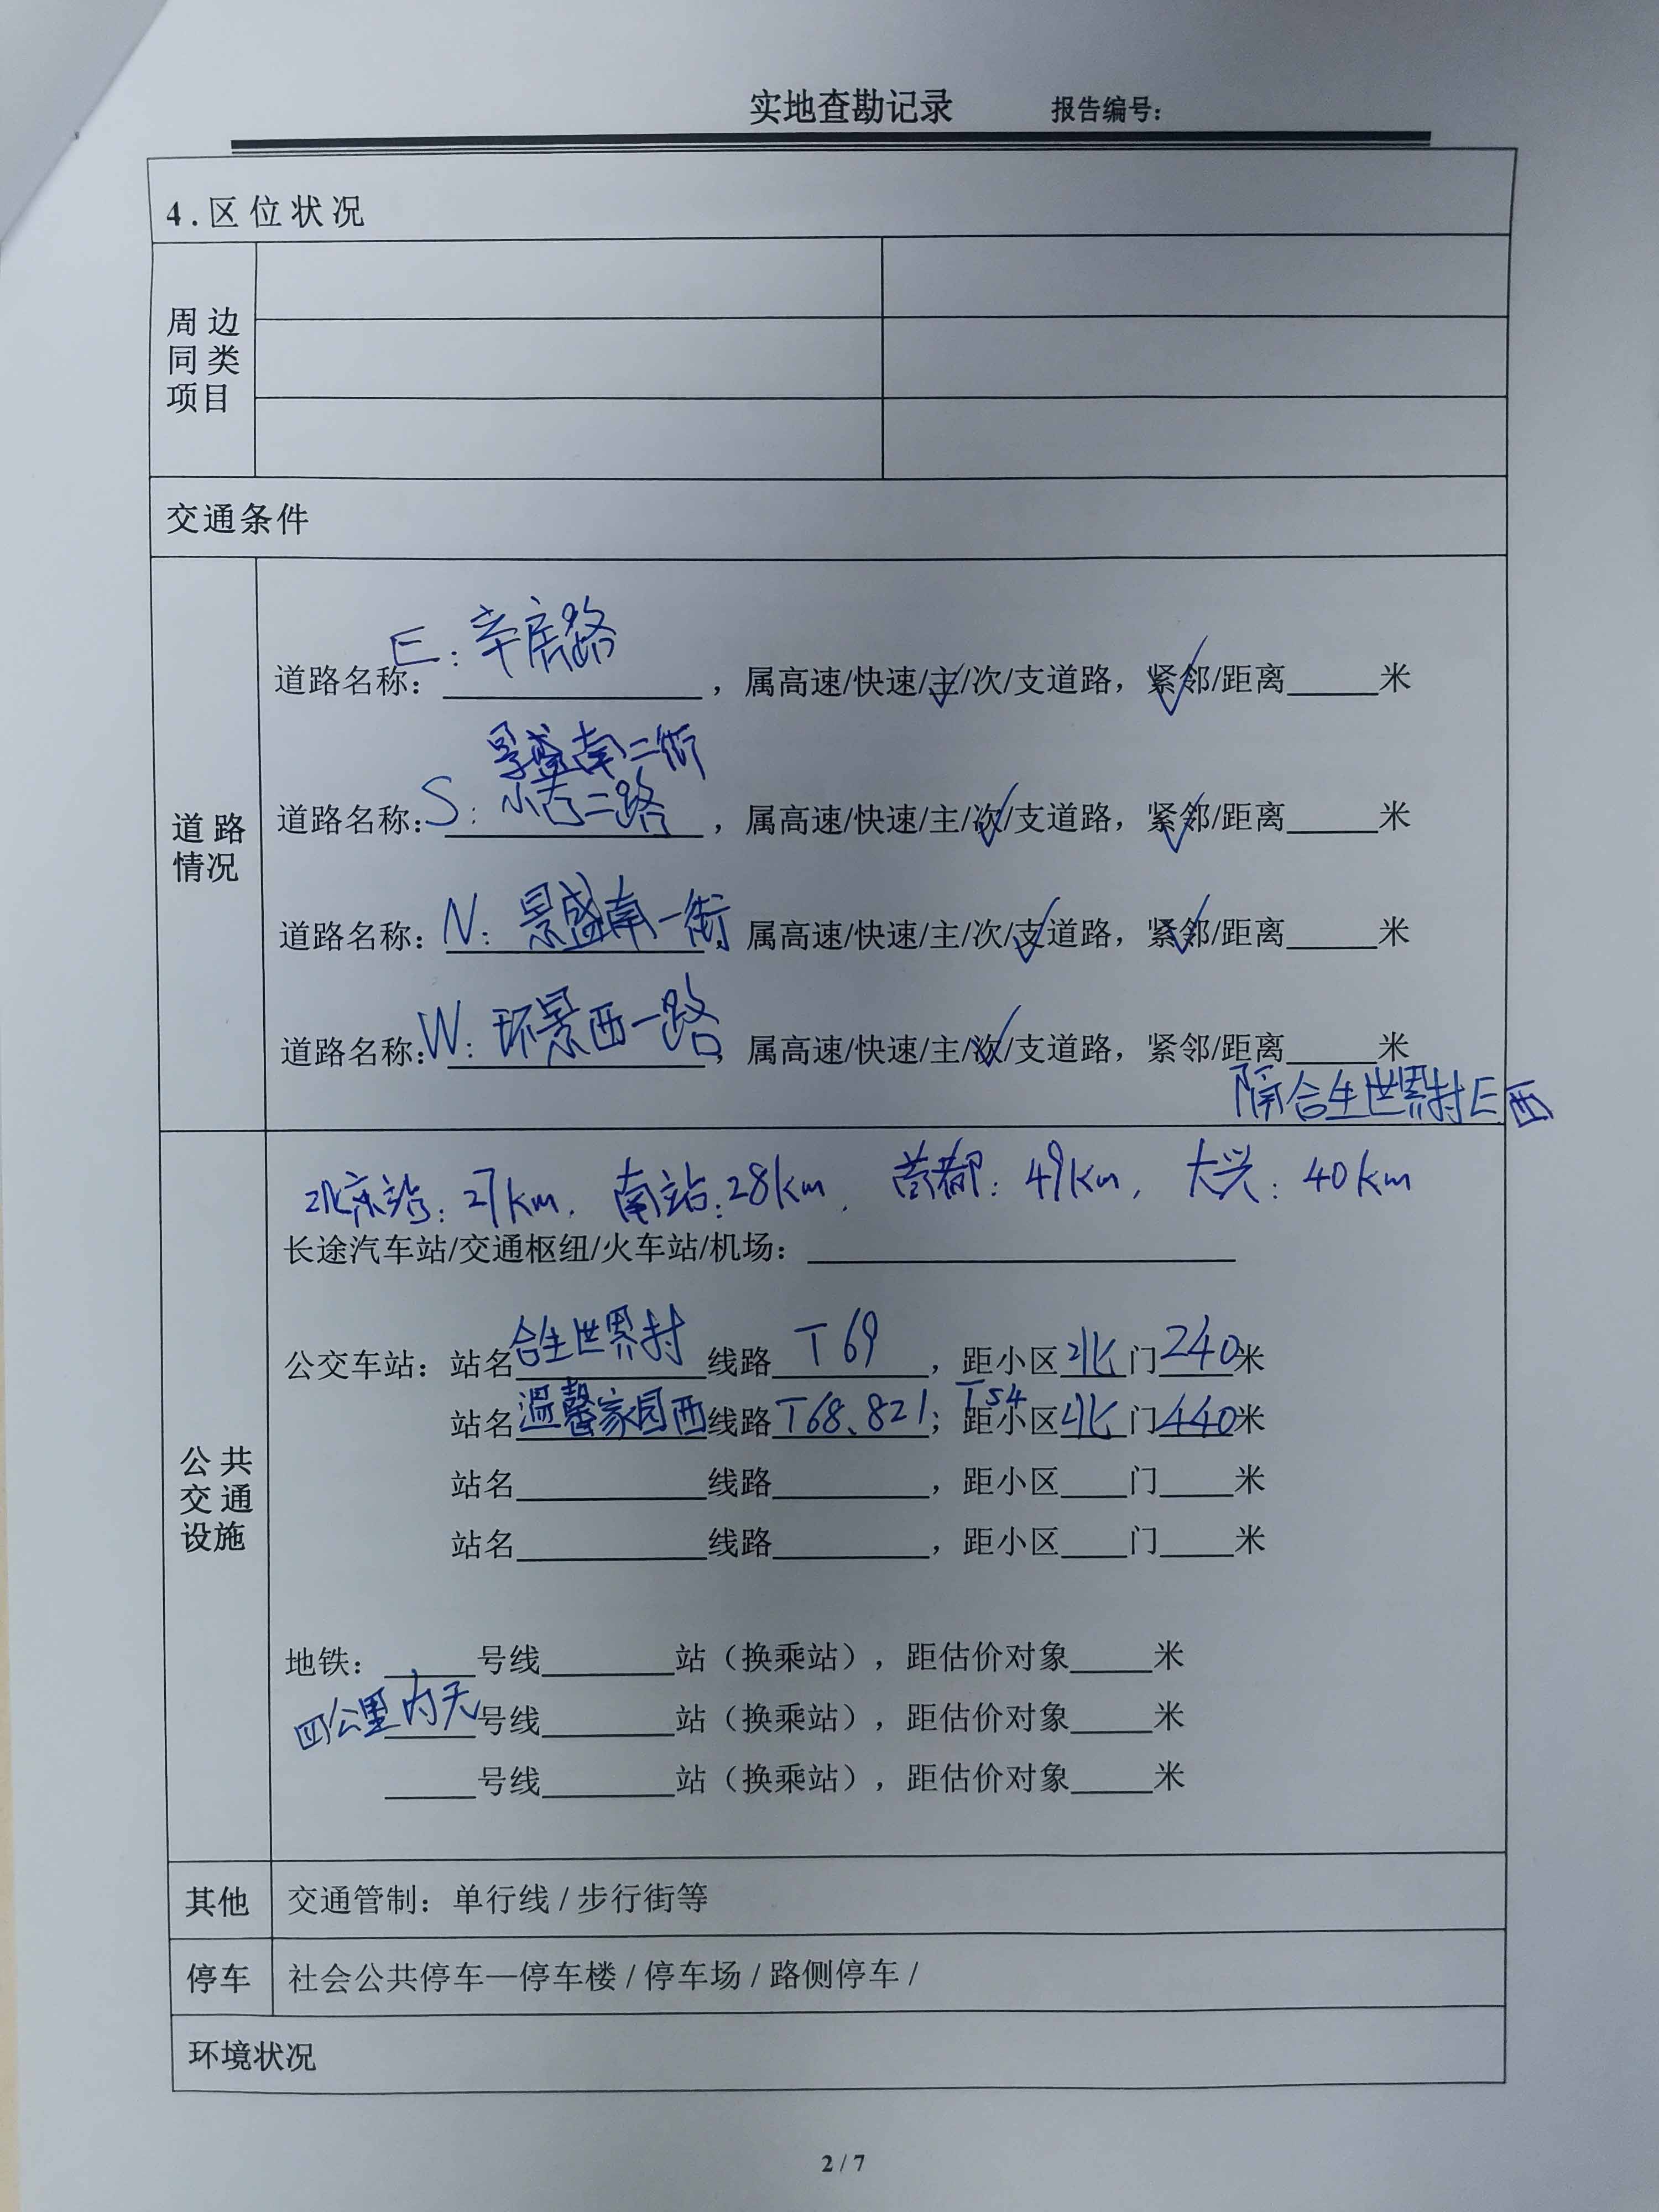 实地查勘记录 报告编号：
4.区位状况
周边
同类
项目
交通条件
道路
情况
E：辛房路
道路名称：________，属高速/快速/主/次/支道路，紧邻/距离____米
景盛南二街
道路名称：S：二路，属高速/快速/主/次/支道路，紧邻/距离____米
道路名称：N：景盛南一街，属高速/快速/主/次/支道路，紧邻/距离____米
道路名称：W：环景西一路，属高速/快速/主/次/支道路，紧邻/距离____米
隔合生世界村E西
公共
交通
设施
北京站：27km，南站：28km，首都：49km，大兴：40km
长途汽车站/交通枢纽/火车站/机场：________
公交车站：站名合生世界村线路T69，距小区北门240米
站名温馨家园西线路T68、821；T54距小区北门440米
站名________线路________，距小区____门____米
站名________线路________，距小区____门____米
地铁：____号线____站（换乘站），距估价对象____米
四公里内无号线____站（换乘站），距估价对象____米
____号线____站（换乘站），距估价对象____米
其他 交通管制：单行线 / 步行街等
停车 社会公共停车—停车楼 / 停车场 / 路侧停车 /
环境状况
2 / 7